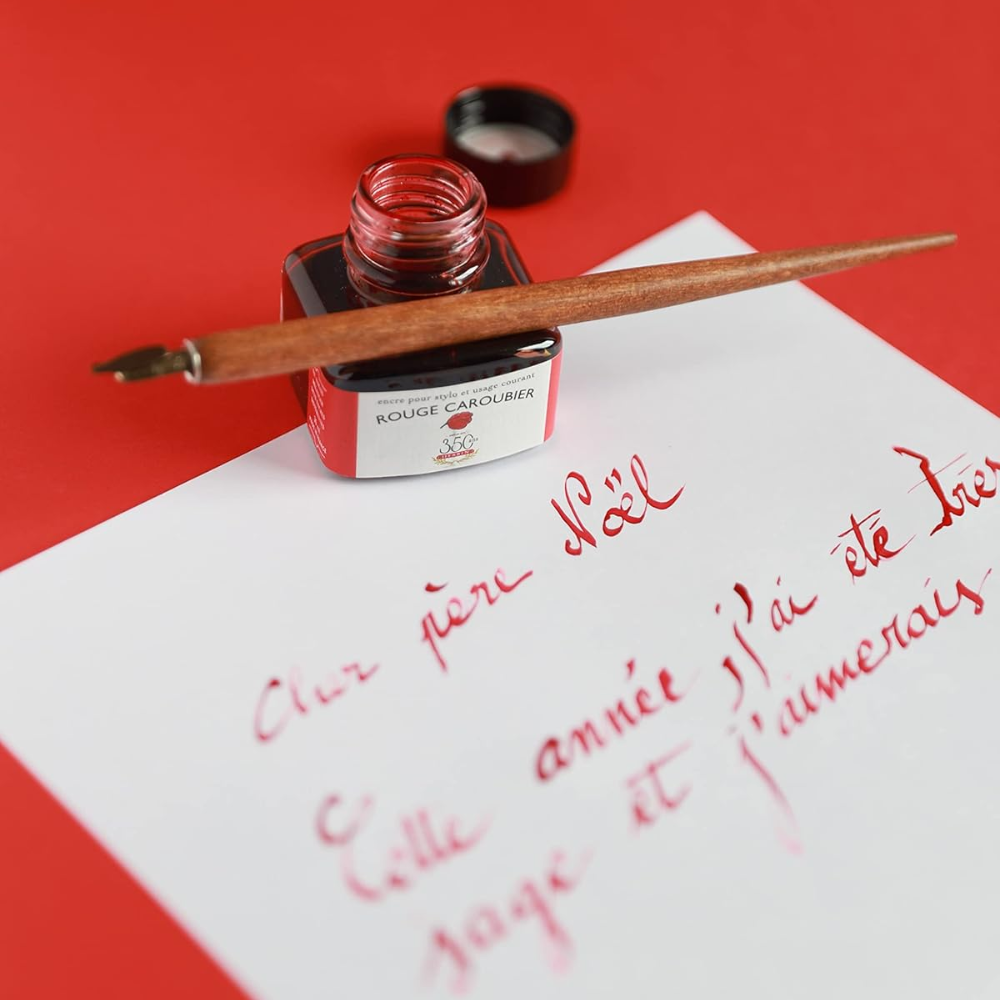 encre pour stylo et usage courant
ROUGE CAROUBIER
350
Cher père Noël
Cette année j'ai été très
sage et j'aimerais